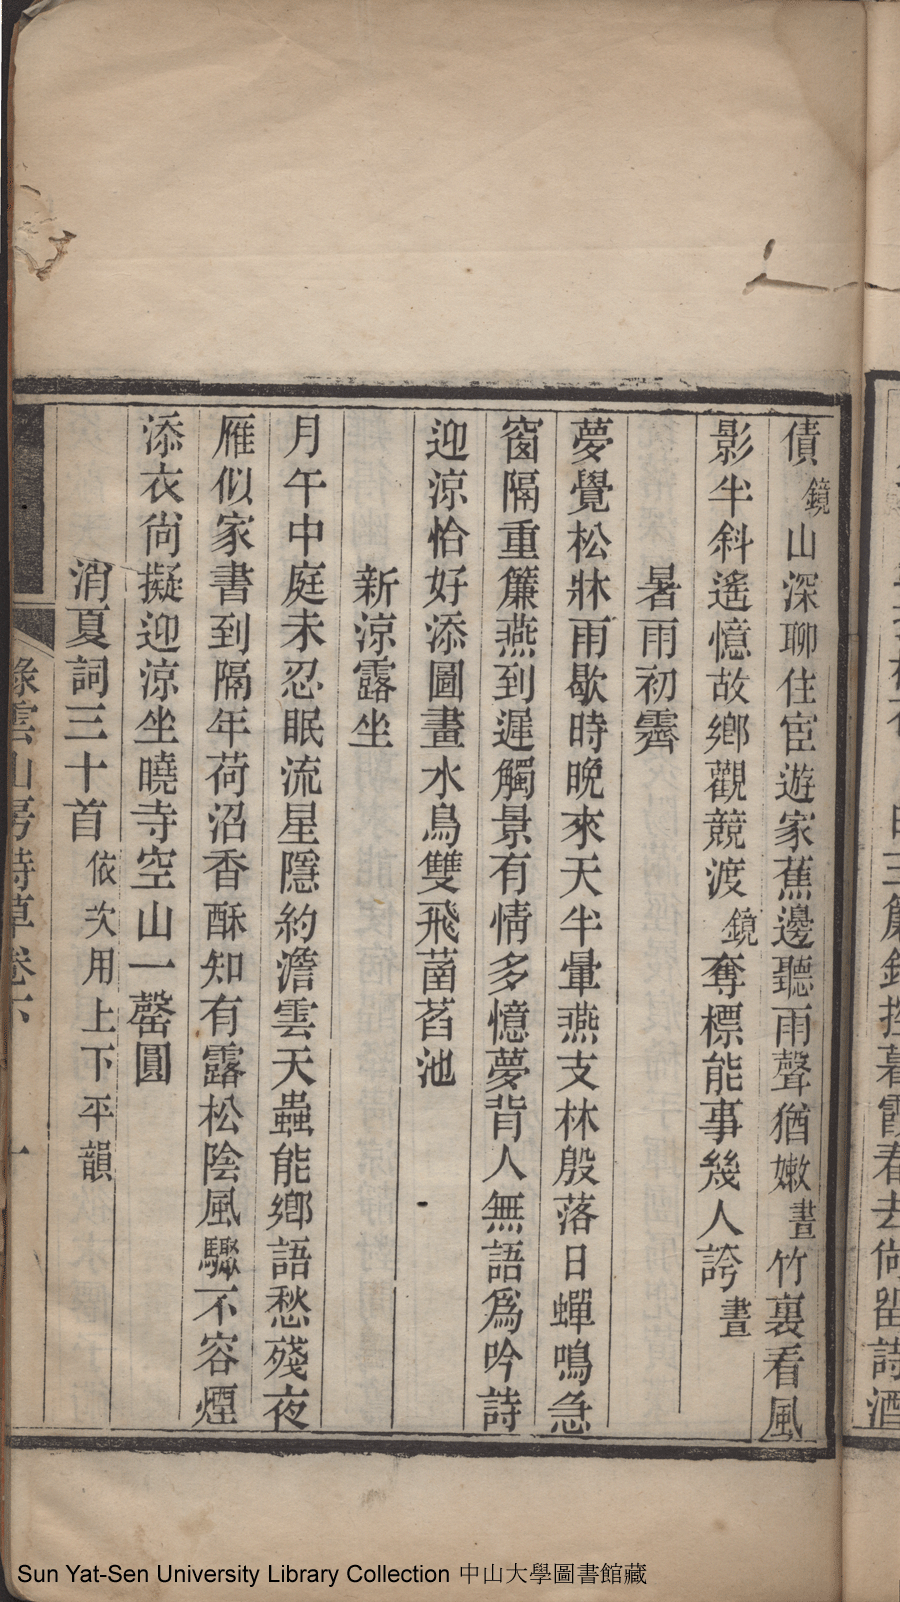 債鏡山深聊住宦遊家蕉邊聽雨聲猶嫩晝竹裏看風
影半斜遙憶故鄉觀競渡鏡奪標能事幾人誇晝
暑雨初霽
夢覺松牀雨歇時晚來天半暈燕支林殷落日蟬鳴急
窗隔重簾燕到遲觸景有情多憶夢背人無語爲吟詩
迎涼恰好添圖畫水鳥雙飛菡萏池
新涼露坐
月午中庭未忍眠流星隱約澹雲天蟲能鄉語愁殘夜
雁似家書到隔年荷沼香酥知有露松陰風驟不容煙
添衣尙擬迎涼坐曉寺空山一罄圓
消夏詞三十首依次用上下平韻
綠雲山房詩草卷下
Sun Yat-Sen University Library Collection 中山大學圖書館藏